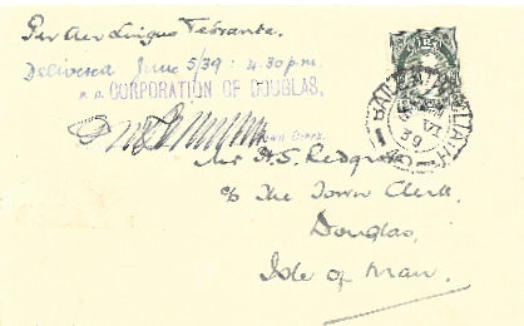 Per Aer Lingus Teoranta.
Delivered June 5/39: 4.30 p.m.
P.P. CORPORATION OF DOUGLAS,
Town Clerk.
Mr H.S. Redgrove
c/o The Town Clerk,
Douglas,
Isle of Man.
BAILE ÁTHA CLIATH
VI
39